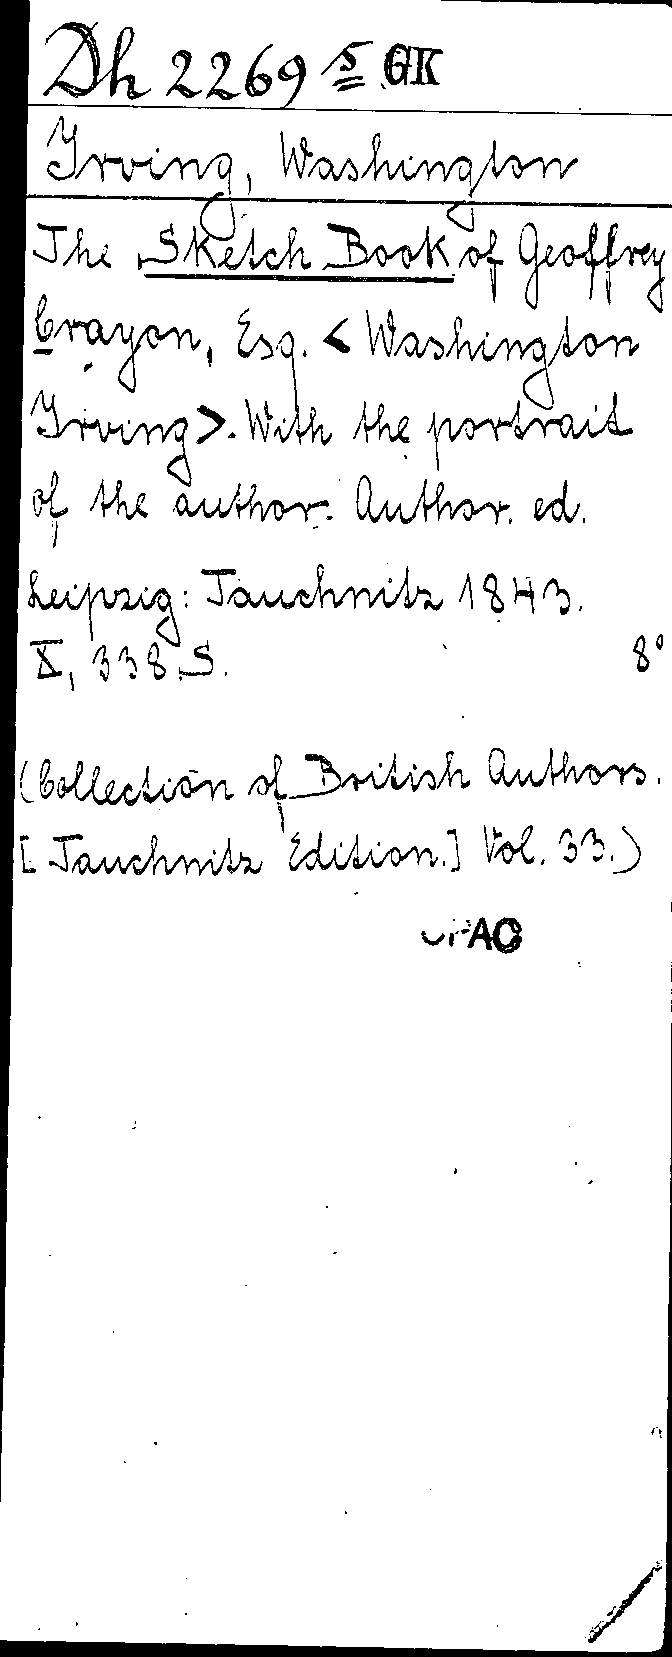 Dh 2269 5 GK
Irving, Washington
The Sketch Book of Geoffrey
Crayon, Esq. < Washington
Irving>. With the portrait
of the author. Author. ed.
Leipzig: Tauchnitz 1843.
X, 338 S. 8°
(Collection of British Authors.
[Tauchnitz Edition.] Vol. 33.)